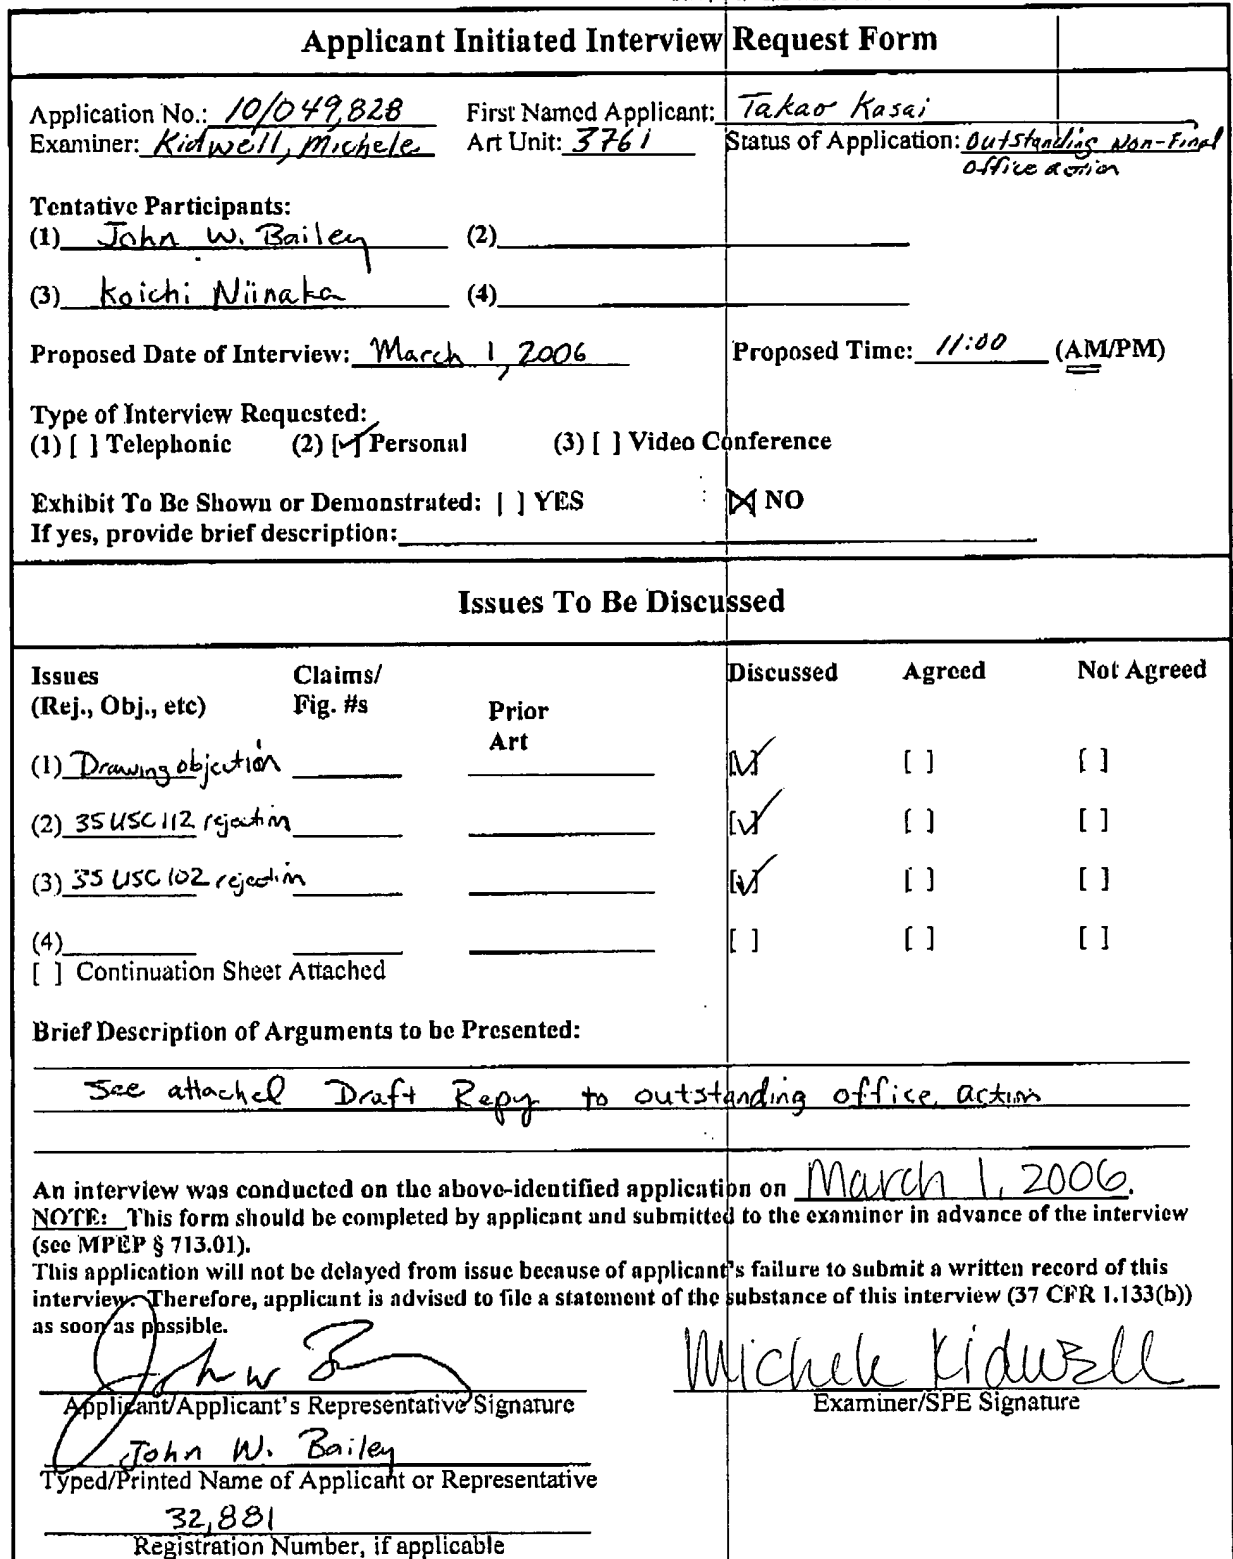 Applicant Initiated Interview Request Form
Application No.: 10/049,828 First Named Applicant: Takao Kasai
Examiner: Kidwell, Michele Art Unit: 3761 Status of Application: Outstanding Non-Final
office action
Tentative Participants:
(1) John W. Bailey (2)
(3) Koichi Niinaka (4)
Proposed Date of Interview: March 1, 2006 Proposed Time: 11:00 (AM/PM)
Type of Interview Requested:
(1) [ ] Telephonic (2) [✓] Personal (3) [ ] Video Conference
Exhibit To Be Shown or Demonstrated: [ ] YES [X] NO
If yes, provide brief description:
Issues To Be Discussed
Issues Claims/ Discussed Agreed Not Agreed
(Rej., Obj., etc) Fig. #s Prior
Art
(1) Drawing objection [✓] [ ] [ ]
(2) 35 USC 112 rejection [✓] [ ] [ ]
(3) 35 USC 102 rejection [✓] [ ] [ ]
(4) [ ] [ ] [ ]
[ ] Continuation Sheet Attached
Brief Description of Arguments to be Presented:
See attached Draft Repy to outstanding office action
An interview was conducted on the above-identified application on March 1, 2006.
NOTE: This form should be completed by applicant and submitted to the examiner in advance of the interview
(see MPEP § 713.01).
This application will not be delayed from issue because of applicant's failure to submit a written record of this
interview. Therefore, applicant is advised to file a statement of the substance of this interview (37 CFR 1.133(b))
as soon as possible.
John W B Michele Kidwell
Applicant/Applicant's Representative Signature Examiner/SPE Signature
John W. Bailey
Typed/Printed Name of Applicant or Representative
32,881
Registration Number, if applicable